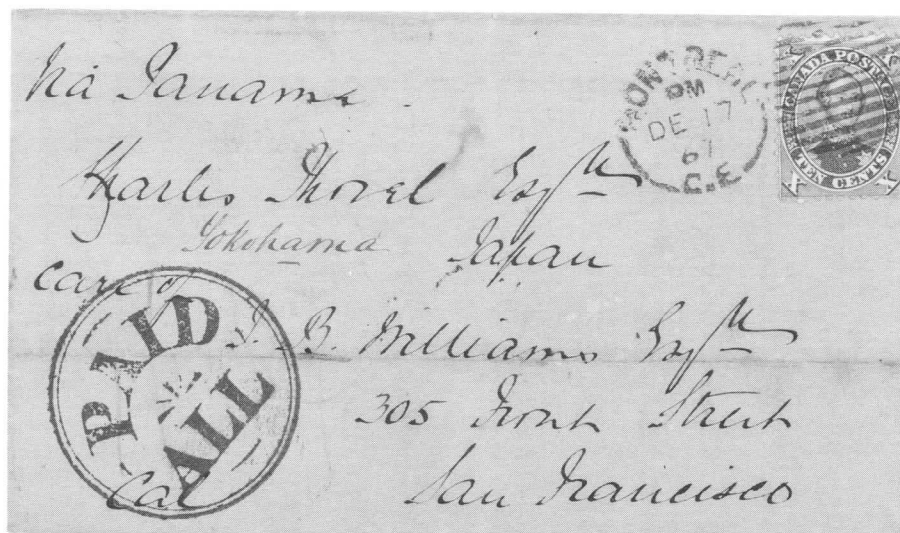 Via Panama
MONTREAL
PM
DE 17
C.E
CANADA POSTAGE
TEN CENTS
Charles Thorel Esqre
Yokohama Japan
Care of
J. B. Williams Esqre
305 Front Street
Cal San Francisco
PAID
ALL